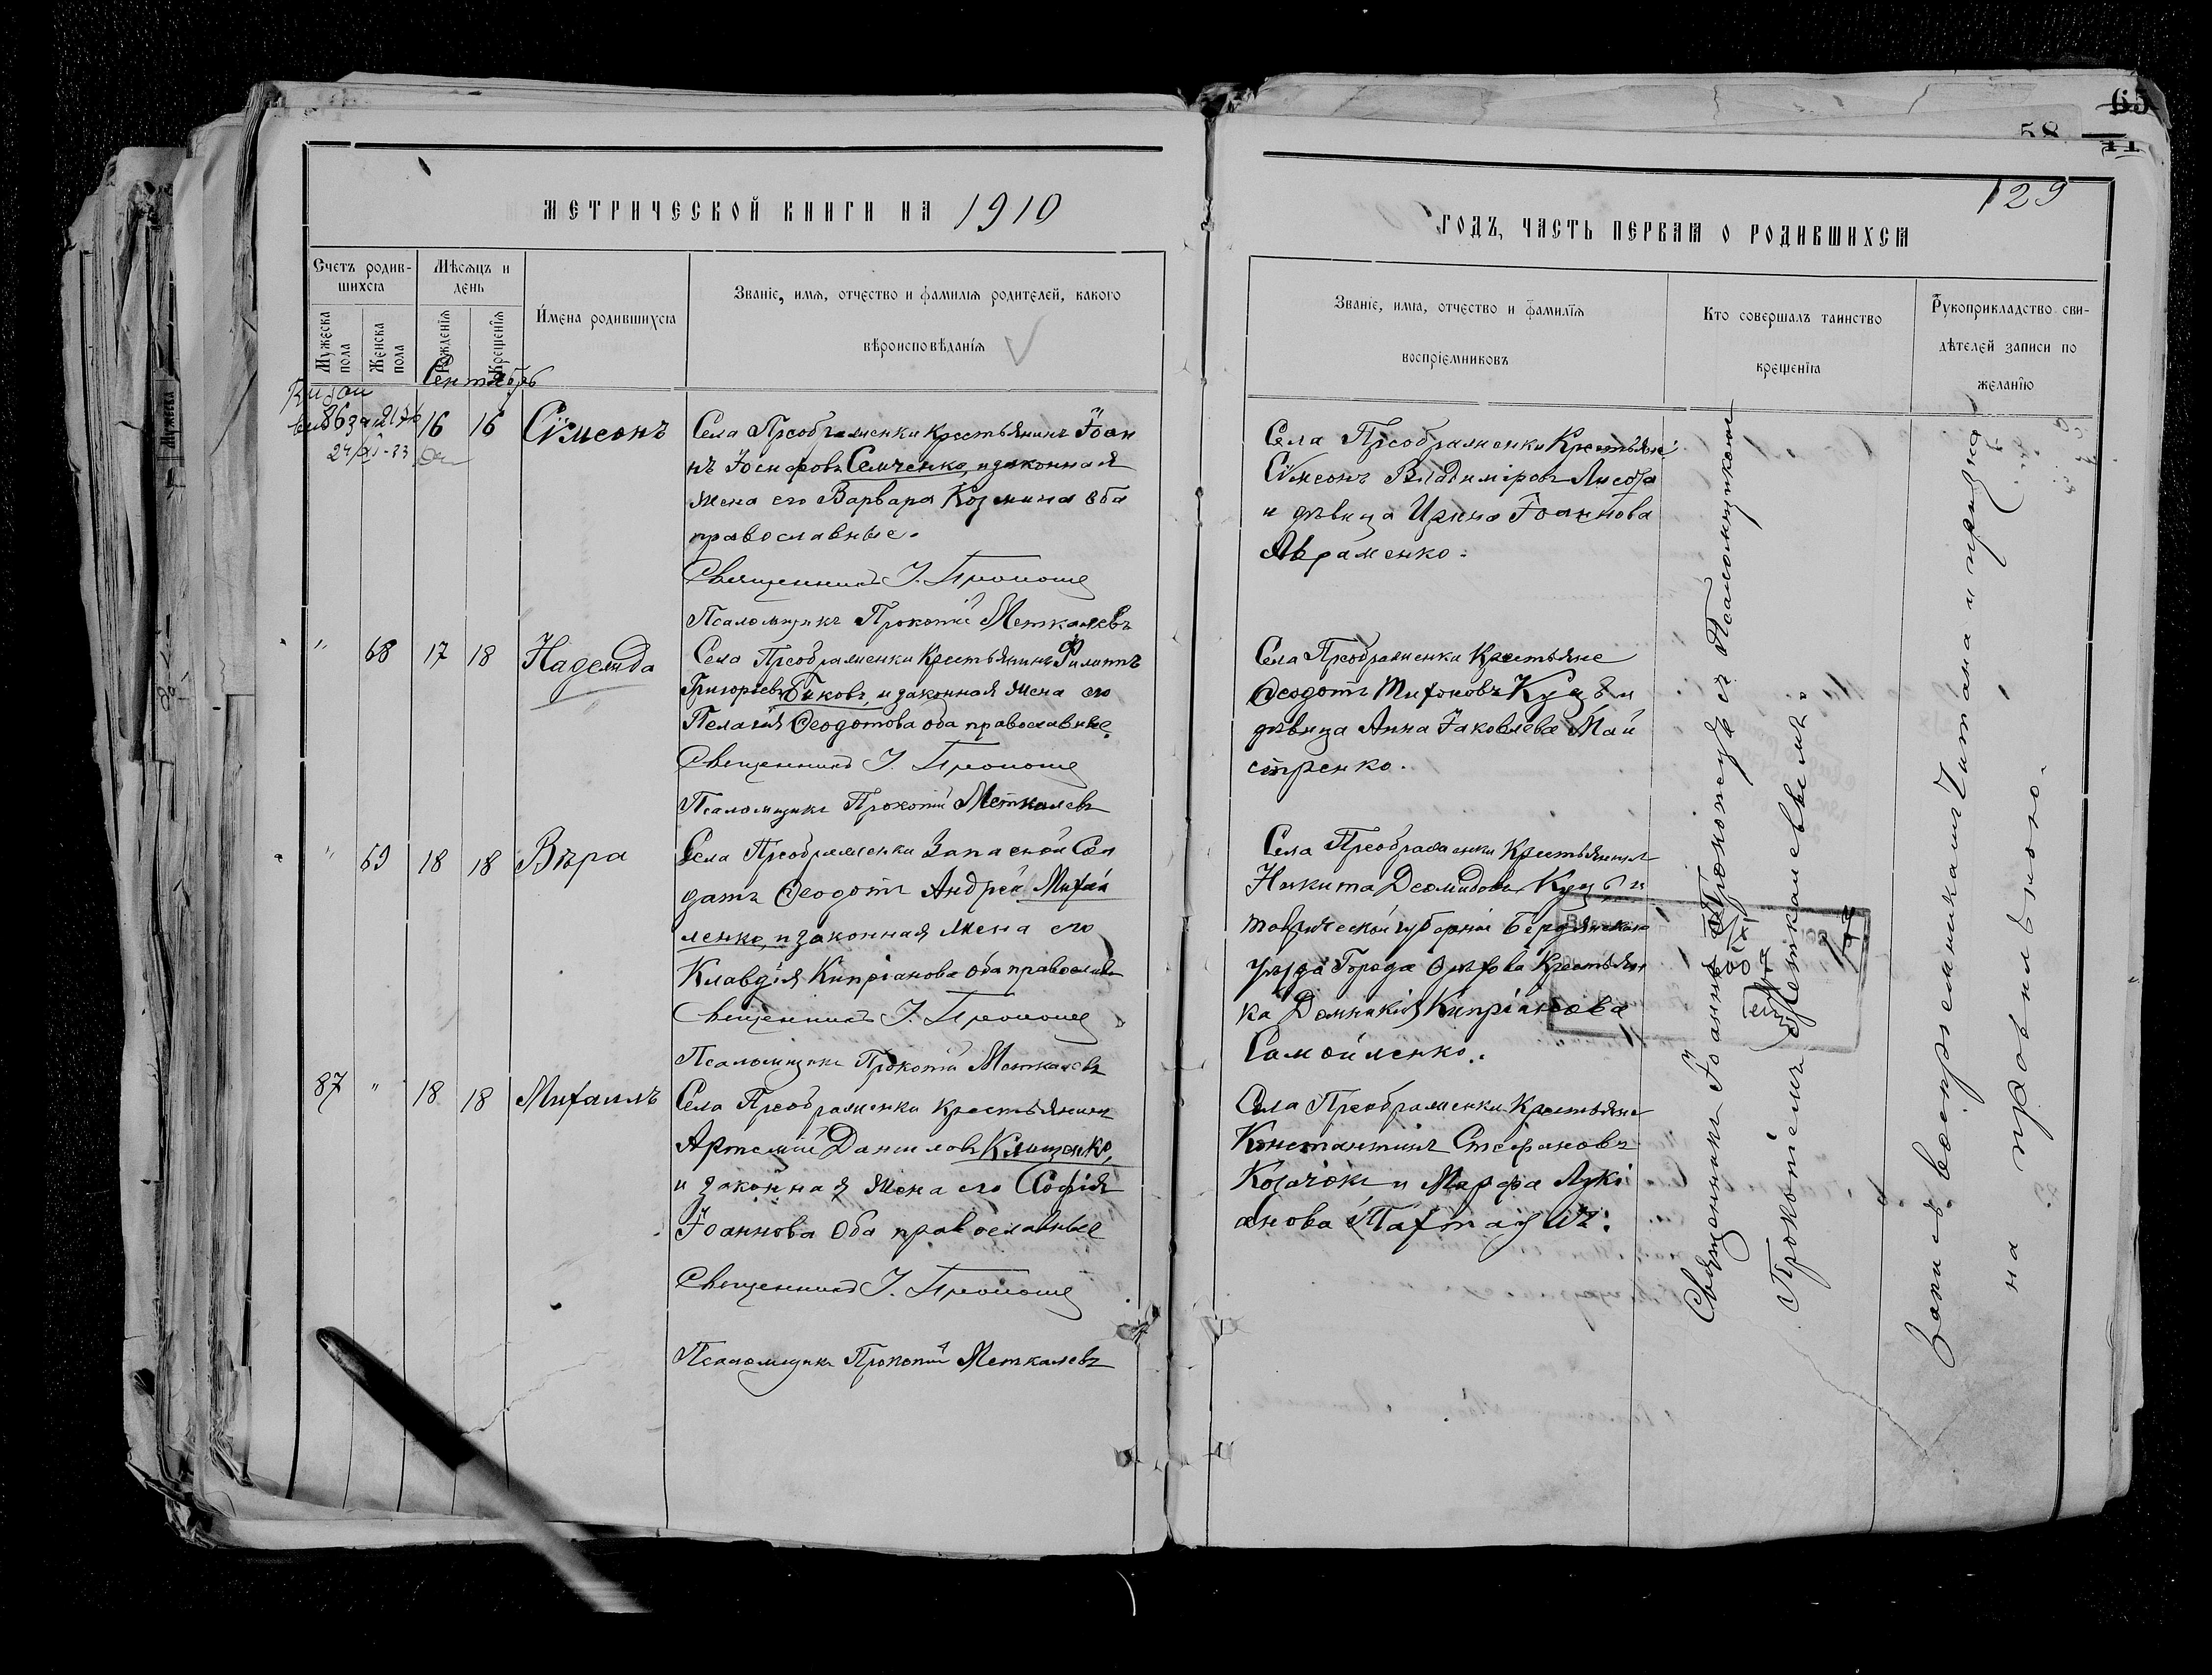 65
58
11
129
МЕТРИЧЕСКОЙ КНИГИ НА 1910
ГОДЪ, ЧАСТЬ ПЕРВАЯ О РОДИВШИХСЯ
Счетъ родив-
шихся
Мужеска
пола
Женска
пола
Мѣсяцъ и
день
Рожденія
Крещенія
Имена родившихся
Званіе, имя, отчество и фамилія родителей, какого
вѣроисповѣданія
Званіе, имя, отчество и фамилія
воспріемниковъ
Кто совершалъ таинство
крещенія
Рукоприкладство сви-
дѣтелей записи по
желанію
Сентябрь
86
16 16 Сѷмеонъ
Села Преображенки крестьянинъ Іоан
нъ Іосифовъ Семченко, и законная
жена его Варвара Козмина оба
православные.
Священникъ І.
Псаломщикъ Прокопій Меткалевъ
Села Преображенки Крестьяне
Сѷмеонъ Владиміровъ
и дѣвица Ирина Іоаннова
Авраменко.
" 68 17 18 Надежда
Села Преображенки Крестьянинъ Филиппъ
Григорьевъ Быковъ, и законная жена его
Пелагія Ѳеодотова оба православные
Священникъ І.
Псаломщикъ Прокопій Меткалевъ
Села Преображенки Крестьяне
Ѳеодотъ Тихоновъ Куцъ и
дѣвица Анна Іаковлева Май
стренко.
" 69 18 18 Вѣра
Села Преображенки Запасной Сол
датъ Ѳеодотъ Андреи Михай
ленко, и законная жена его
Клавдія Кипріанова оба православн
Священникъ І.
Псаломщикъ Прокопій Меткалевъ
Села Преображенки Крестьянинъ
Никита Деомидовъ Куцъ и
Таврической губерніи Бердянскаго
уѣзда Города Орѣхова Крестьян
ка Домникія Кипріанова
Самойленко.
87 " 18 18 Михаилъ
Села Преображенки крестьянинъ
Артемій Даниловъ Клищенко,
и законная жена его Софія
Іоаннова Оба православные
Священникъ І.
Псаломщикъ Прокопій Меткалевъ
Села Преображенки Крестьяне
Константинъ Стефановъ
и Марфа Лукі
анова
Священникъ Іоаннъ съ Псаломщикомъ
Прокопіемъ Меткалевымъ.
Запись воспріемникамъ читана и призна
на правильною.